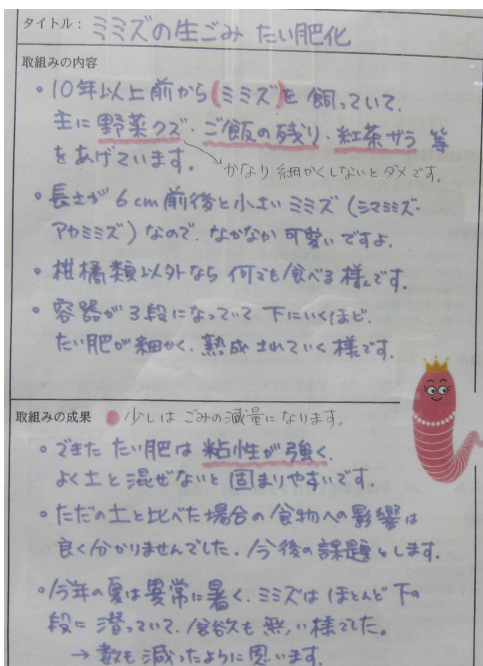 タイトル： ミミズの生ごみ たい肥化
取組みの内容
・10年以上前から(ミミズ)を飼っていて.
主に野菜クズ・ご飯の残り・紅茶ガラ等
をあげています。
かなり細かくしないとダメです。
・長さが6cm前後と小さいミミズ(シマミミズ・
アカミミズ)なので、なかなか可愛いですよ.
・柑橘類以外なら何でも食べる様です.
・容器が3段になっていて下にいくほど.
たい肥が細かく、熟成されていく様です.
取組みの成果
●少しはごみの減量になります。
・できたたい肥は粘性が強く.
よく土と混ぜないと固まりやすいです.
・ただの土と比べた場合の食物への影響は
良く分かりませんでした.今後の課題とします.
・今年の夏は異常に暑く.ミミズはほとんど下の
段に潜っていて.食欲も無い様でした。
→数も減ったように思います.